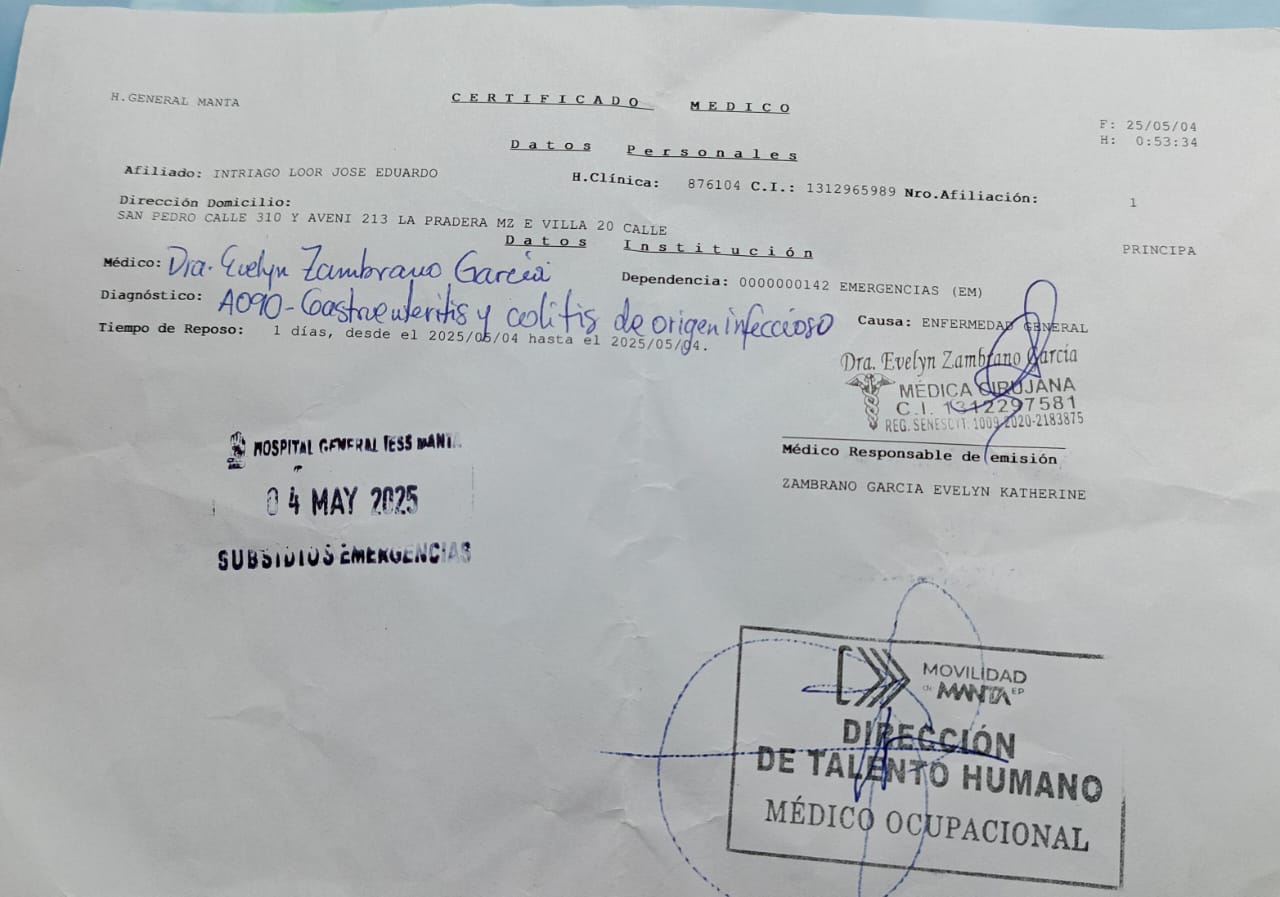 H.GENERAL MANTA
CERTIFICADO MEDICO
F: 25/05/04
H: 0:53:34
Datos Personales
Afiliado: INTRIAGO LOOR JOSE EDUARDO
H.Clínica: 876104 C.I.: 1312965989 Nro.Afiliación: 1
Dirección Domicilio:
SAN PEDRO CALLE 310 Y AVENI 213 LA PRADERA MZ E VILLA 20 CALLE
PRINCIPA
Datos Institución
Médico: Dra. Evelyn Zambrano García
Dependencia: 0000000142 EMERGENCIAS (EM)
Diagnóstico: A090-Gastroenteritis y colitis de origen infeccioso
Causa: ENFERMEDAD GENERAL
Tiempo de Reposo: 1 días, desde el 2025/05/04 hasta el 2025/05/04.
Dra. Evelyn Zambrano García
MÉDICA CIRUJANA
C.I. 1312297581
REG. SENESCYT: 1009-2020-2183875
Médico Responsable de emisión
ZAMBRANO GARCIA EVELYN KATHERINE
HOSPITAL GENERAL IESS MANTA
04 MAY 2025
SUBSIDIOS EMERGENCIAS
MOVILIDAD
de MANTA EP
DIRECCIÓN
DE TALENTO HUMANO
MÉDICO OCUPACIONAL